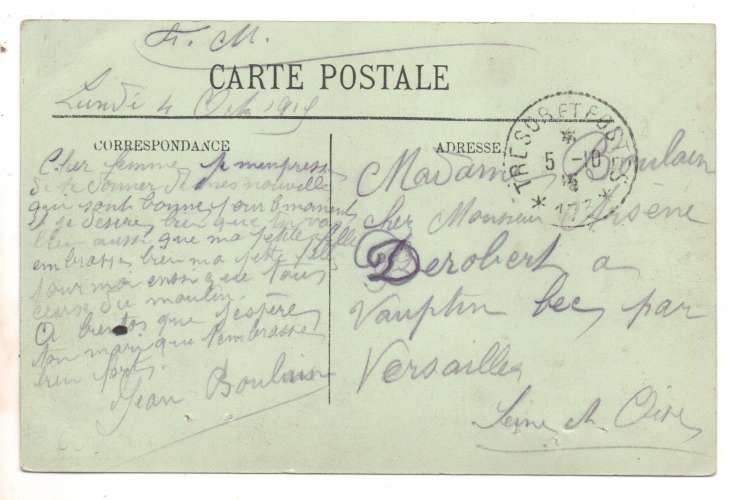 F. M.
CARTE POSTALE
Lundi 4 Oct 1915
CORRESPONDANCE
Cher femme je m'empresse
de te donner de mes nouvelle
qui sont bonne pour le moment
et je désire bien que tu
bien aussi que ma petite fille
embrasse bien ma petite fille
pour moi ensi que tous
ceux du moulin.
A bientos que j'espère
ton mari que t'embrasse
bien fort.
Jean Boulain
ADRESSE
Madame Boulain
cher Monsieur Arsène
Derobert a
par
Versailles
Seine et Oise
TRESOR ET POSTES
5 -10